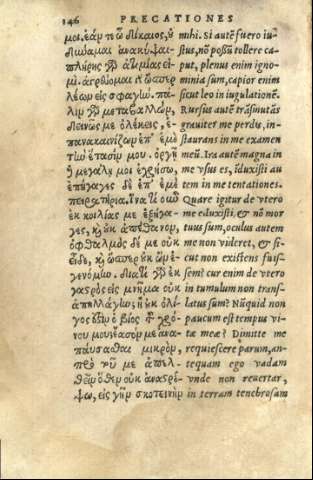 146 PRECATIONES
μοι. ἐὰν δὲ ὦ δίκαιος, οὐ
δύναμαι ἀνακύψαι·
πλήρης γὰρ ἀτιμίας εἰ-
μί. ἀγρεύομαι γὰρ ὥσπερ
λέων εἰς σφαγὴν. πά-
λιν γὰρ μεταβαλὼν,
δεινῶς με ὀλέκεις, ἐ-
πανακαινίζων ἐπ' ἐμὲ
τὴν ἔτασίν μου. ὀργῇ
μεγάλῃ μοι ἐχρήσω,
ἐπήγαγες δὲ ἐπ' ἐμὲ
πειρατήρια. ἵνα τί οὖν
ἐκ κοιλίας με ἐξήγα-
γες, καὶ οὐκ ἀπέθανον,
ὀφθαλμὸς δέ με οὐκ
εἶδε, καὶ ὥσπερ οὐκ ὢν ἐ-
γενόμην. διατί γὰρ ἐκ
γαστρὸς εἰς μνῆμα οὐκ
ἀπηλλάγην; ἢ οὐκ ὀλί-
γος ἐστὶν ὁ βίος τοῦ χρό-
νου μου; ἔασόν με ἀνα-
παύσασθαι μικρὸν,
πρὸ τοῦ με ἀπελ-
θεῖν ὅθεν οὐκ ἀναστρέ-
ψω, εἰς γῆν σκοτεινὴν
mihi. Si autē fuero iu-
stus, nō possū tollere ca-
put, plenus enim igno-
minia sum, capior enim
sicut leo in iugulationē.
Rursus autē trāsmutās
grauiter me perdis, in-
staurans in me examen
meū. Ira autē magna in
me vsus es, iduxisti au
tem in me tentationes.
Quare igitur de vtero
me eduxisti, & nō mor
tuus sum, oculus autem
me non videret, & si-
cut non existens fuis-
sem? cur enim de vtero
in tumulum non trans-
latus sum? Nūquid non
paucum est tempus vi-
tæ meæ? Dimitte me
requiescere parum, an-
tequam ego vadam
vnde non reuertar,
in terram tenebrosam